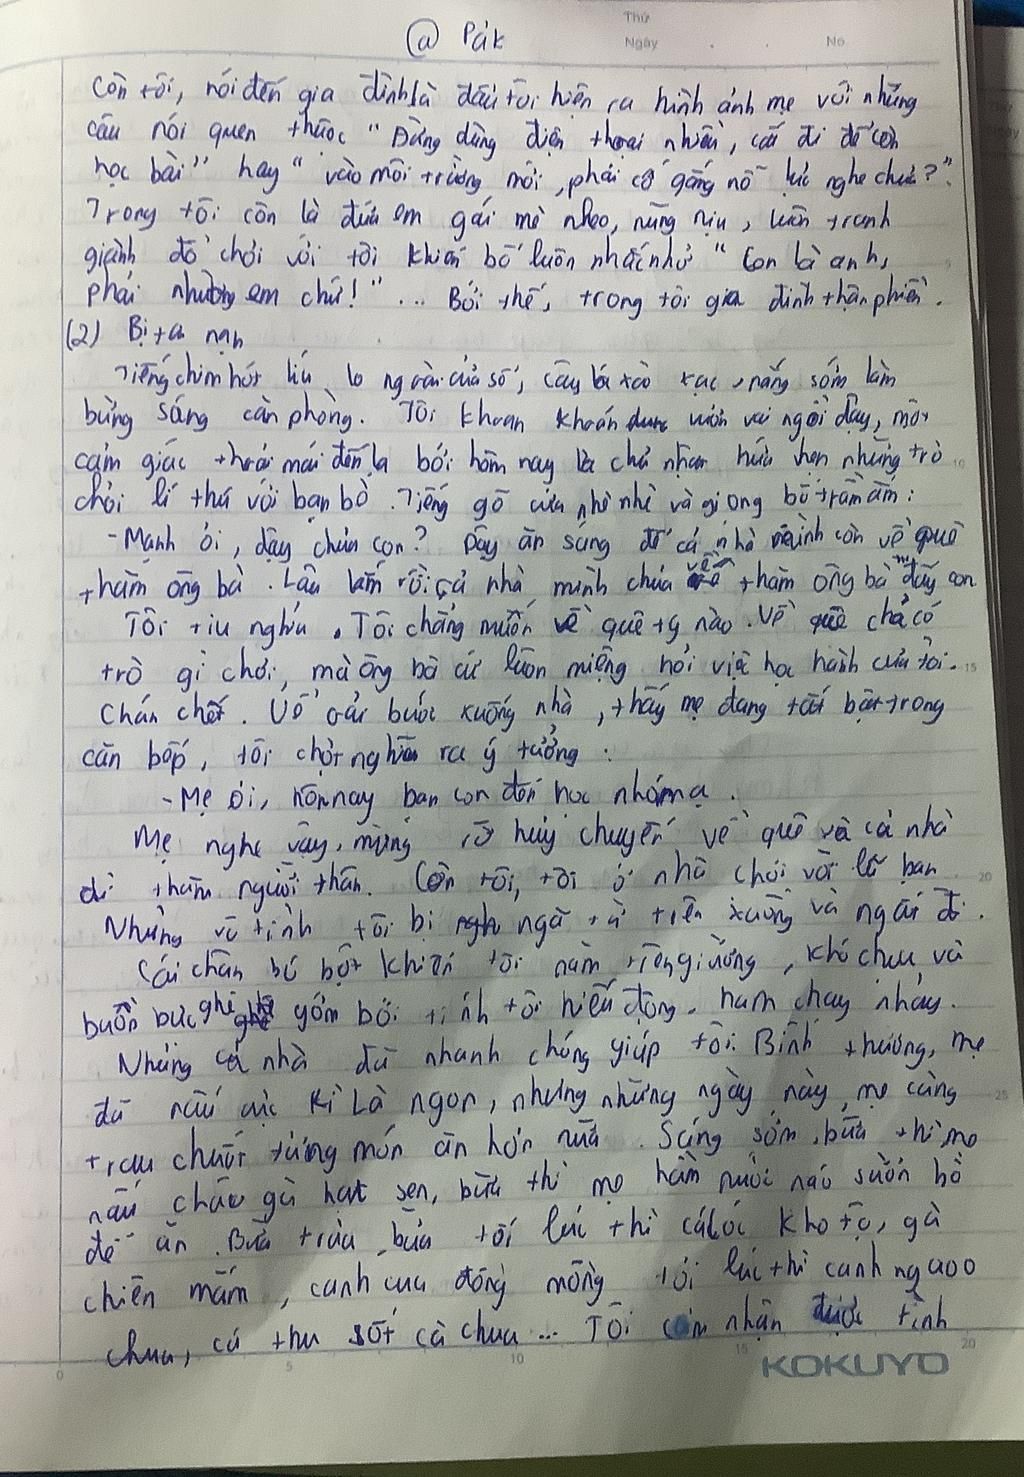 @ Pák
Thứ
Ngày . . No
Còn tôi, nói đến gia đình là đầu tôi hiện ra hình ảnh mẹ với những
câu nói quen thuộc " Đừng dùng điện thoại nhiều, cất đi để còn
học bài" hay " vào môi trường mới, phải cố gắng nỗ lực nghe chưa?".
Trong tôi còn là đứa em gái mè nheo, nũng nịu, luôn tranh
giành đồ chơi với tôi khiến bố luôn nhắc nhở " Con là anh,
phải nhường em chứ!"... Bởi thế, trong tôi gia đình thân phiền.
(2) Bị tai nạn
Tiếng chim hót líu lo ngoài cửa sổ, cây lá xào xạc, nắng sớm làm
bừng sáng căn phòng. Tôi khoan khoái vươn vai ngồi dậy, một
cảm giác thoải mái đến lạ bởi hôm nay là chủ nhật hứa hẹn những trò
chơi lí thú với bạn bè. Tiếng gõ cửa nhè nhẹ và giọng bố trầm ấm:
- Mạnh ơi, dậy chưa con? Dậy ăn sáng để cả nhà mình còn về quê
thăm ông bà. Lâu lắm rồi cả nhà mình chưa về thăm ông bà đấy con
Tôi tiu nghỉu. Tôi chẳng muốn về quê tý nào. Về quê chả có
trò gì chơi, mà ông bà cứ luôn miệng hỏi việc học hành của tôi.
Chán chết. Uể oải bước xuống nhà, thấy mẹ đang tất bật trong
căn bếp, tôi chợt nghĩ ra ý tưởng:
- Mẹ ơi, hôm nay bạn con đến học nhóm ạ.
Mẹ nghe vậy, mừng rỡ hủy chuyến về quê và cả nhà
đi thăm người thân. Còn tôi, tôi ở nhà chơi với lũ bạn
Nhưng vô tình tôi bị ngã từ trên xuống và ngất đi.
Cái chân bó bột khiến tôi nằm trên giường, khó chịu và
buồn bực ghê gớm bởi tính tôi hiếu động, ham chạy nhảy.
Nhưng cả nhà đã nhanh chóng giúp tôi. Bình thường, mẹ
đã nấu cực kì là ngon, nhưng những ngày này, mẹ càng
trau chuốt từng món ăn hơn nữa. Sáng sớm, bữa thì mẹ
nấu cháo gà hạt sen, bữa thì mẹ hầm nước náo sườn bò
để ăn. Bữa trưa, bữa tối lúc thì cá lóc kho tộ, gà
chiên mắm, canh cua đồng mồng tơi lúc thì canh ngao
chua, cá thu sốt cà chua... Tôi cảm nhận được tình
KOKUYO